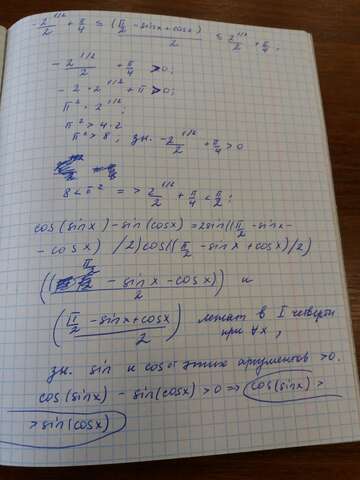 -2^{1/2}/2 + π/4 ≤ (π/2 - sinx + cosx)/2 ≤ 2^{1/2}/2 + π/4;
-2^{1/2}/2 + π/4 > 0;
-2 * 2^{1/2} + π > 0;
π² > 4·2
π² > 8, зн. -2^{1/2}/2 + π/4 > 0
8 < π² => 2^{1/2}/2 + π/4 < π/2;
cos(sinx) - sin(cosx) = 2sin((π/2 - sinx -
- cosx) /2)cos((π/2 - sinx + cosx)/2)
((π/2 - sinx - cosx)/2) и
((π/2 - sinx + cosx)/2) лежат в I четверти
при ∀x,
зн. sin и cos от этих аргументов >0.
cos(sinx) - sin(cosx) > 0 => cos(sinx) >
> sin(cosx)